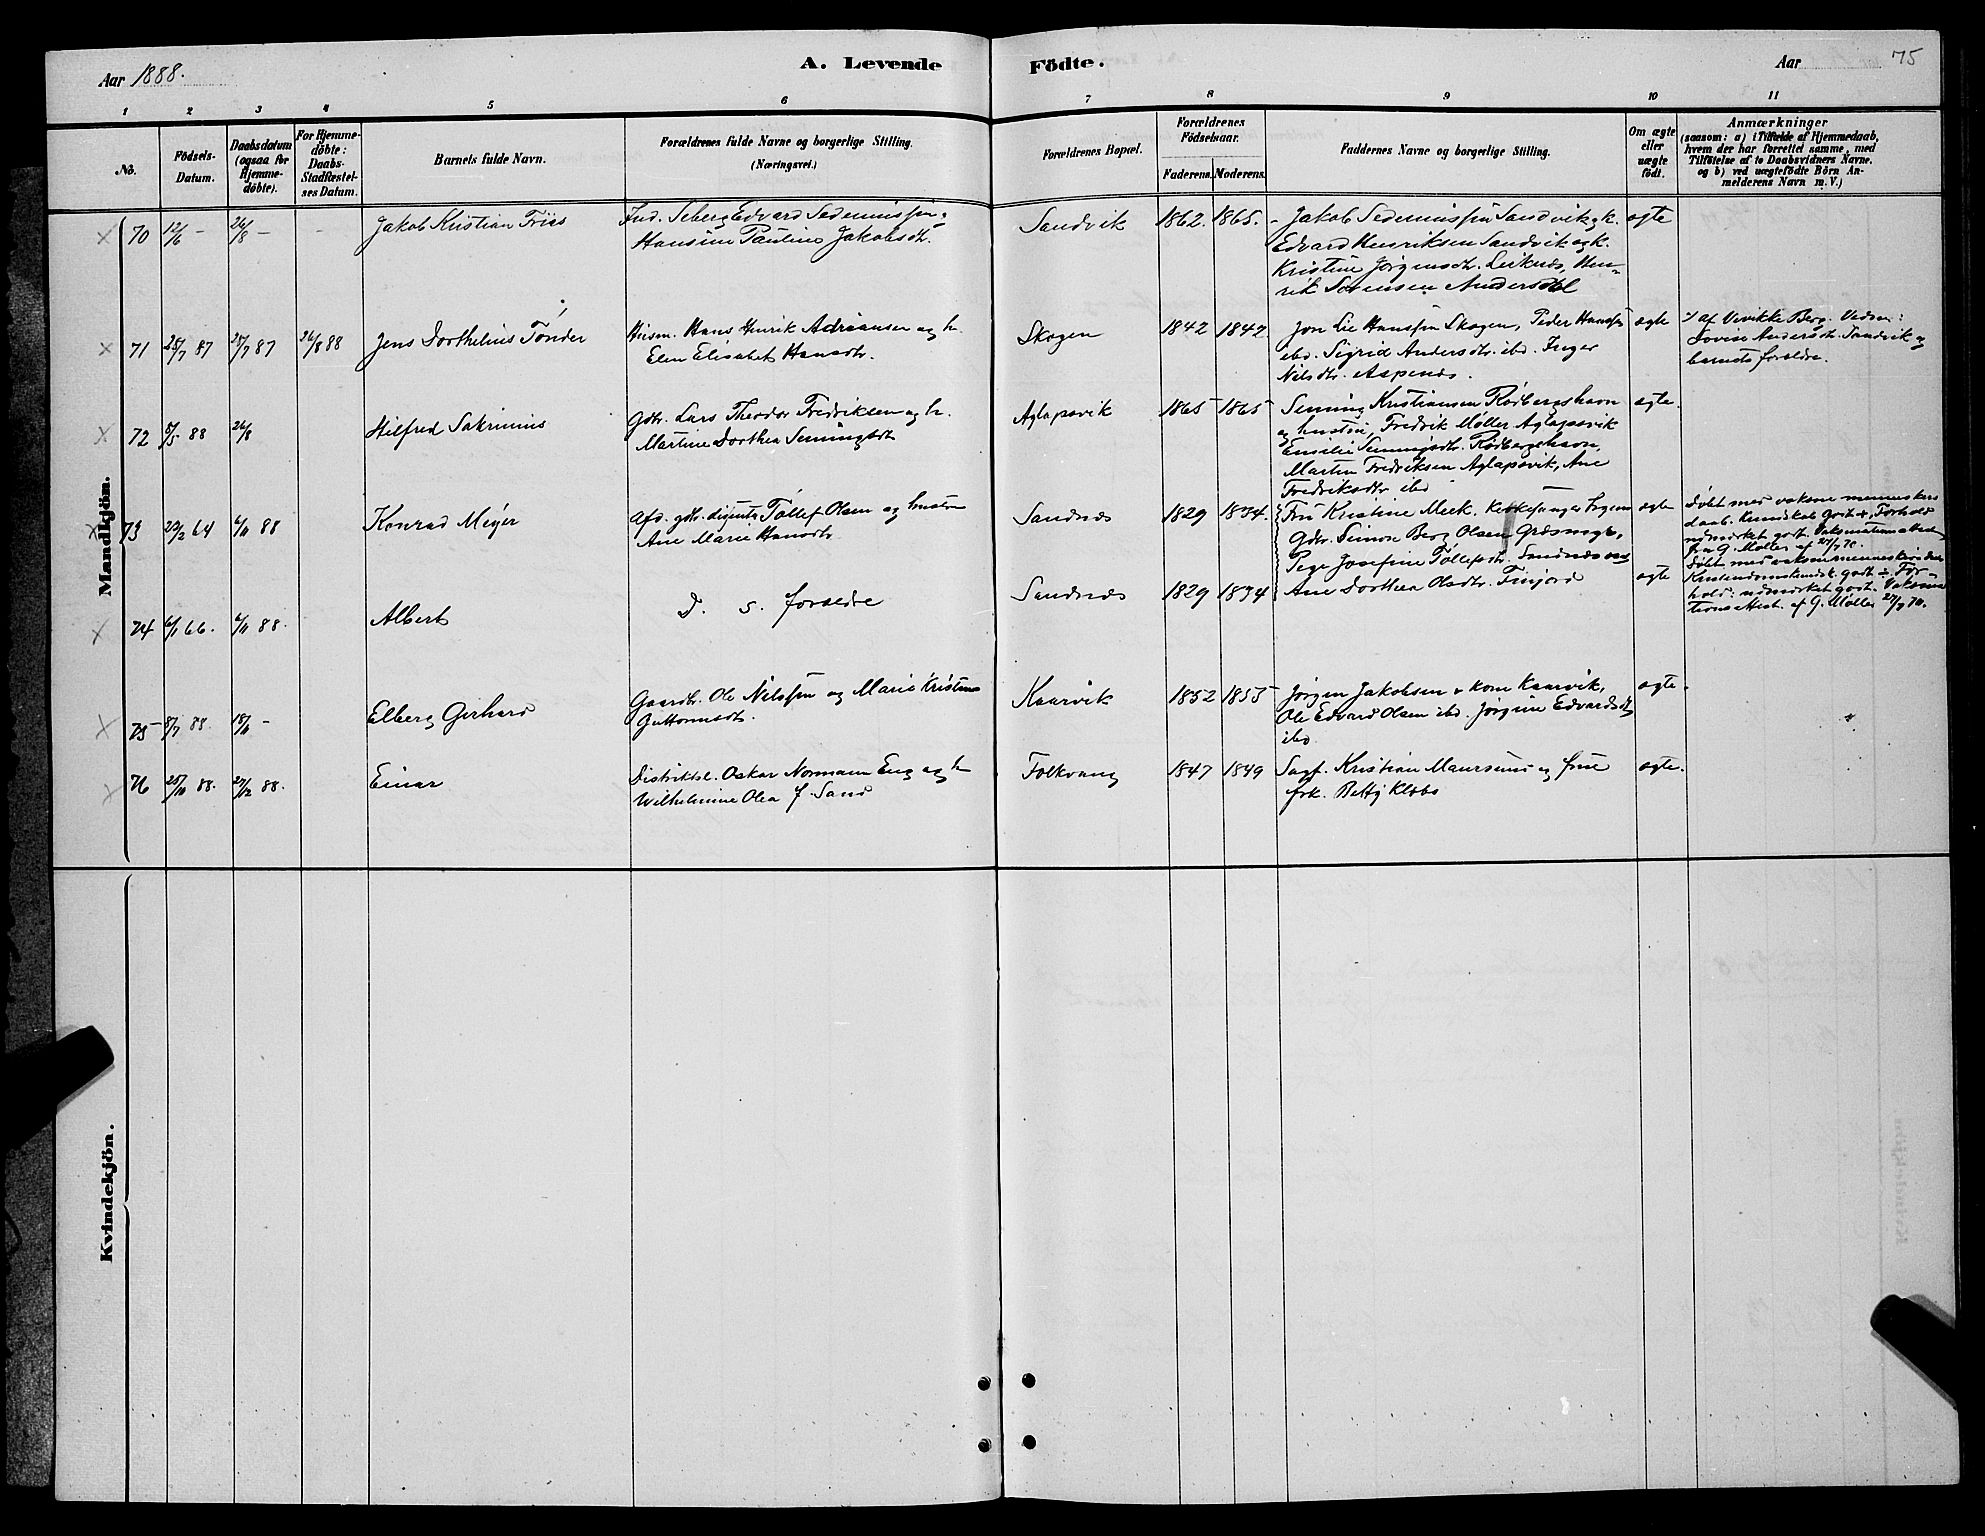 Aar 1888.
A. Levende
Födte.
Aar
75
1 2 3 4 5 6 7 8 9 10 11
No.
Födsels-
Datum.
Daabsdatum
(ogsaa for
Hjemme-
döbte).
For Hjemme-
döbte:
Daabs-
Stadfæstel-
ses Datum.
Barnets fulde Navn.
Forældrenes fulde Navne og borgerlige Stilling.
(Næringsvei.)
Forældrenes Bopæl.
Forældrenes
Födselsaar.
Faderens. Moderens.
Faddernes Navne og borgerlige Stilling.
Om ægte
eller
uægte
födt.
Anmærkninger
(saasom: a) i Tilfælde af Hjemmedaab,
hvem der har forrettet samme, med
Tilföielse af to Daabsvidners Navne.
og b) ved uægtefödte Börn An-
melderens Navn m. V.)
Mandkjön.
70 12/6 - 26/8 - -
Jakob Kristian Friis
Ind. Seberg Edvard Sedeniussen,
Hansine Pauline Jakobsdt.
Sandvik
1862. 1865.
Jakob Sedeniussen Sandvik og k.
Edvard Henriksen Sandvik og k.
Kristine Jørgensdt. Leiknes, Hen-
rik Sørensen Andersdal
ægte
71 25/7 87 25/7 87 26/8 88
Jens Dorthelius Tønder
Husm. Hans Henrik Adriansen og h.
Elen Elisabet Hansdtr.
Skogen
1842 1842.
Jon Lie Hanssen Skogen, Peder Hanssen
ibd. Sigrid Andersdtr. ibd. Inger
Nilsdtr. Aspenes.
ægte
af Vivikke Berg. Vidner:
Lovise Andersdtr. Sandvik og
barnets forældre.
72 5/5 88 26/8
Hilfred Sakrinius
Gdbr. Lars Theodor Fredriksen og h.
Martine Dorthea Senningsdt
Aglapsvik
1865 1865
Senning Kristiansen Rødbergshavn
og hustru, Fredrik Møller Aglapsvik
Emilie Senningsdtr. Rødbergshavn,
Martin Fredriksen Aglapsvik, Ane
Fredriksdtr ibd
ægte.
73 23/2 64 6/11 88
Konrad Meyer
Afd. gdbr. disjenter Tollef Olsen og hustru
Ane Marie Hansdtr.
Sandnes
1829 1834.
Fru Kristine Meek. Kirkesanger Irgens
Gdbr. Simon Berg Olsen Græsmyr,
Pige Josefine Tollefsdtr. Sandnes
ægte
Døbt med voksne menneskers
daab. Kundskab godt +, Forhold
udmærket godt. Vaksinationsattest
fra G. Møller af 27/7 70.
74 6/1 66. 6/11 88.
Albert
D. s. forældre
Sandnes
1829 1834
Ane Dorthea Olsdtr. Finjord
ægte
Døbt med voksne menneskers daab
Kristendomskundsk. godt ÷. For-
hold: udmærket godt. Vaksina-
tionsattest af G. Møller 27/7 70.
75 8/7 88. 18/11 -
Elberg Gerhard
Gaardbr. Ole Nilssen og Marie Kristine
Guttormsdt.
Kaarvik
1852 1853
Jørgen Jakobsen + kone Kaarvik,
Ole Edvard Olsen ibd. Jørgine Edvardsdtr
ibd.
ægte.
76 25/10 88. 27/12 88.
Einar
Distriktsl. Oskar Normann Eng og h
Wilhelmine Olea f. Sand
Folkvang
1847 1849
Sagf. Kristian Maursund og frue
frk. Betty Klæbo
ægte.
Kvindekjön.